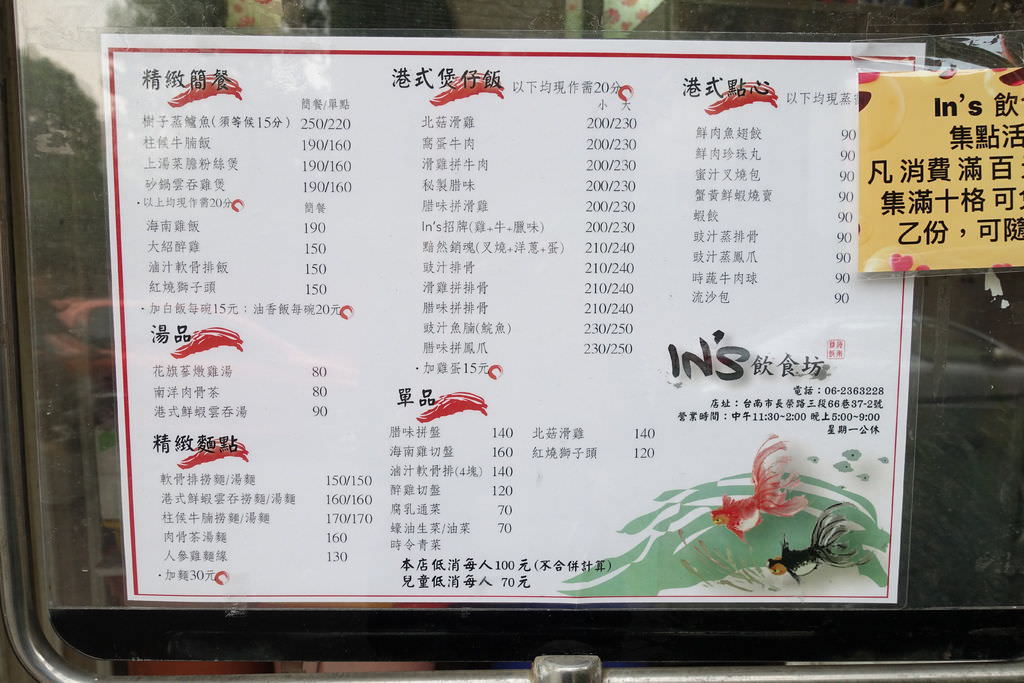 精緻簡餐
簡餐/單點
樹子蒸鱸魚(須等候15分) 250/220
柱候牛腩飯 190/160
上湯菜膽粉絲煲 190/160
砂鍋雲吞雞煲 190/160
·以上均現作需20分
簡餐
海南雞飯 190
大紹醉雞 150
滷汁軟骨排飯 150
紅燒獅子頭 150
·加白飯每碗15元；油香飯每碗20元
湯品
花旗蔘燉雞湯 80
南洋肉骨茶 80
港式鮮蝦雲吞湯 90
精緻麵點
軟骨排撈麵/湯麵 150/150
港式鮮蝦雲吞撈麵/湯麵 160/160
柱候牛腩撈麵/湯麵 170/170
肉骨茶湯麵 160
人參雞麵線 130
·加麵30元
港式煲仔飯 以下均現作需20分
小 大
北菇滑雞 200/230
窩蛋牛肉 200/230
滑雞拼牛肉 200/230
秘製腊味 200/230
腊味拼滑雞 200/230
In's招牌(雞+牛+臘味) 200/230
黯然銷魂(叉燒+洋蔥+蛋) 210/240
豉汁排骨 210/240
滑雞拼排骨 210/240
腊味拼排骨 210/240
豉汁魚腩(鯇魚) 230/250
腊味拼鳳爪 230/250
·加雞蛋15元
單品
腊味拼盤 140
海南雞切盤 160
滷汁軟骨排(4塊) 140
醉雞切盤 120
腐乳通菜 70
蠔油生菜/油菜 70
時令青菜
北菇滑雞 140
紅燒獅子頭 120
本店低消每人100元(不合併計算)
兒童低消每人 70元
港式點心 以下均現蒸
鮮肉魚翅餃 90
鮮肉珍珠丸 90
蜜汁叉燒包 90
蟹黃鮮蝦燒賣 90
蝦餃 90
豉汁蒸排骨 90
豉汁蒸鳳爪 90
時蔬牛肉球 90
流沙包 90
IN'S飲食坊
電話：06-2363228
店址：台南市長榮路三段66巷37-2號
營業時間：中午11:30~2:00 晚上5:00~9:00
星期一公休
In's 飲
集點活
凡消費滿百
集滿十格可
乙份，可隨